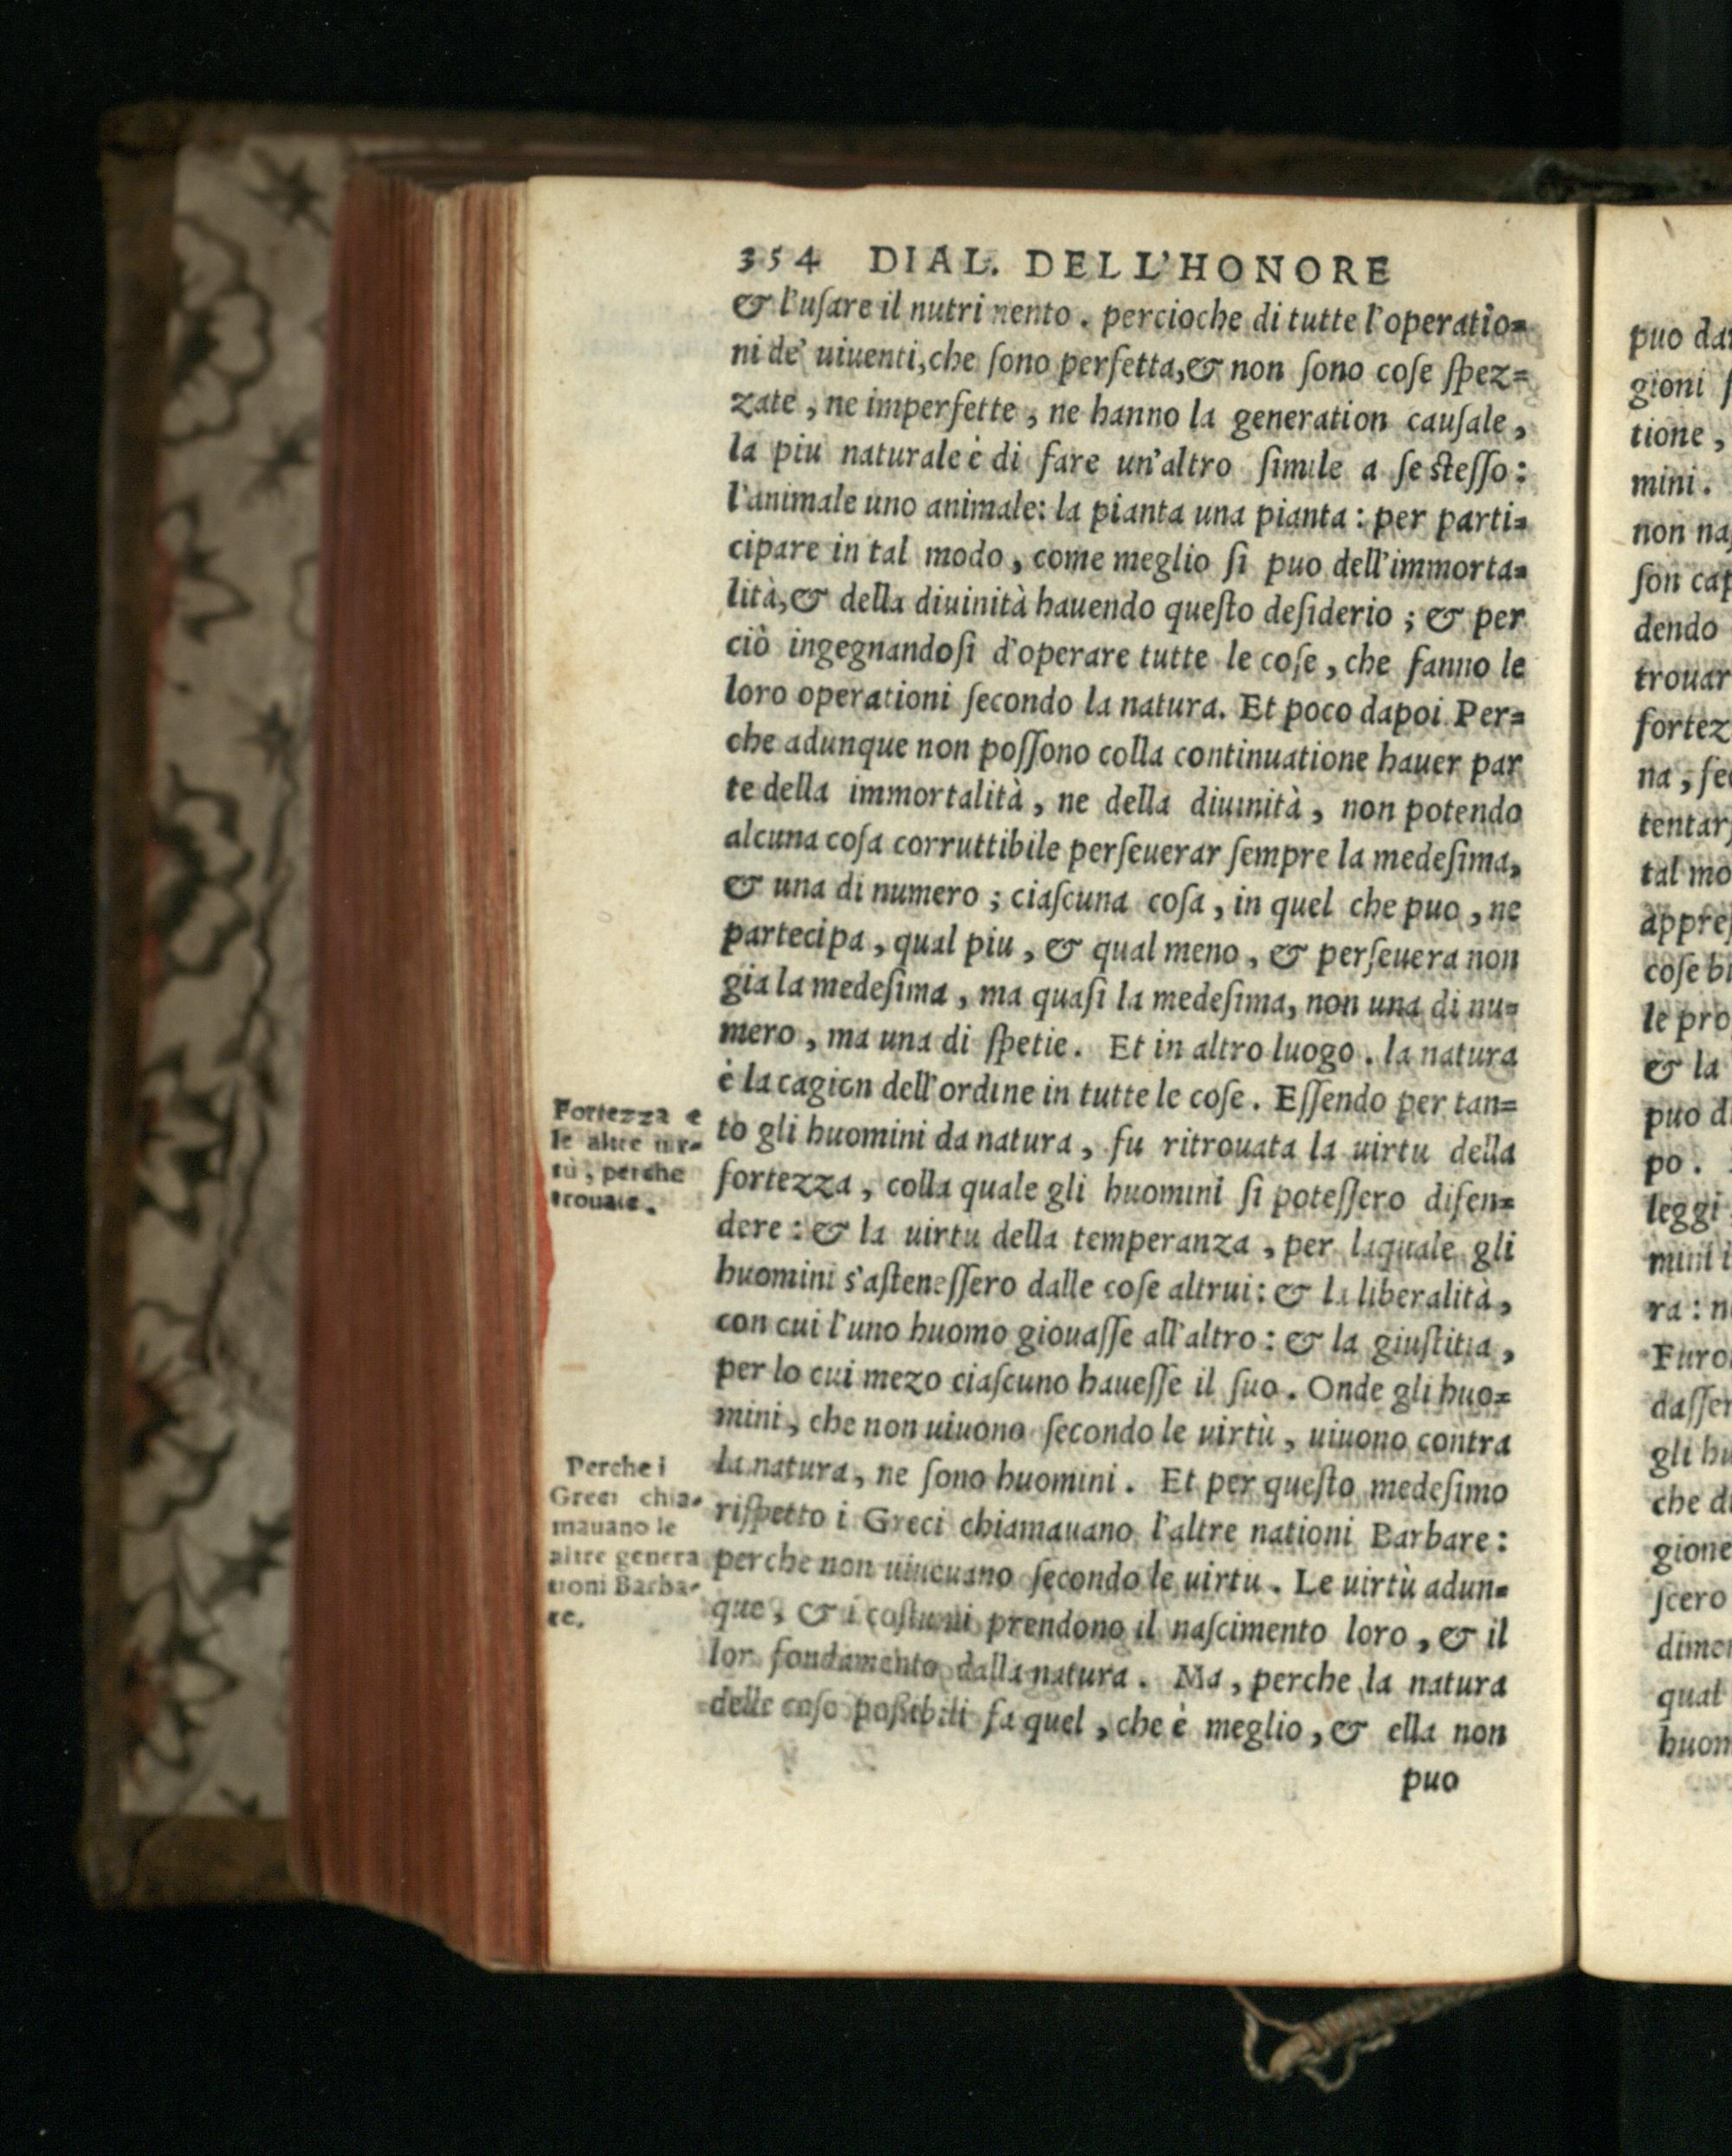 354 DIAL. DELL'HONORE
& l'uſare il nutrimento. percioche di tutte l'operatio=
ni de' uiuenti, che ſono perfetta, & non ſono coſe ſpez=
zate, ne imperfette, ne hanno la generation cauſale,
la piu naturale è di fare un'altro ſimile a ſe ſteſſo:
l'animale uno animale: la pianta una pianta: per parti=
cipare in tal modo, come meglio ſi puo dell'immorta=
lità, & della diuinità hauendo queſto deſiderio; & per
ciò ingegnandoſi d'operare tutte le coſe, che fanno le
loro operationi ſecondo la natura. Et poco dapoi Per=
che adunque non poſſono colla continuatione hauer par
te della immortalità, ne della diuinità, non potendo
alcuna coſa corruttibile perſeuerar ſempre la medeſima,
& una di numero; ciaſcuna coſa, in quel che puo, ne
partecipa, qual piu, & qual meno, & perſeuera non
gia la medeſima, ma quaſi la medeſima, non una di nu=
mero, ma una di ſpetie. Et in altro luogo. la natura
è la cagion dell'ordine in tutte le coſe. Eſſendo per tan=
to gli huomini da natura, fu ritrouata la uirtu della
fortezza, colla quale gli huomini ſi poteſſero difen=
dere: & la uirtu della temperanza, per laquale gli
huomini s'aſteneſſero dalle coſe altrui: & la liberalità,
con cui l'uno huomo giouaſſe all'altro: & la giuſtitia,
per lo cui mezo ciaſcuno haueſſe il ſuo. Onde gli huo=
mini, che non uiuono ſecondo le uirtù, uiuono contra
la natura, ne ſono huomini. Et per queſto medeſimo
riſpetto i Greci chiamauano l'altre nationi Barbare:
perche non uiueuano ſecondo le uirtu. Le uirtù adun=
que, & i coſtumi prendono il naſcimento loro, & il
lor fondamento dalla natura. Ma, perche la natura
delle coſe poſſibili fa quel, che è meglio, & ella non
puo
Fortezza e
le altre uir-
tù, perche
trouate.
Perche i
Greci chia-
mauano le
altre genera
tioni Barba-
re.
puo dar
gioni
tione,
mini.
non na
ſon cap
dendo
trouar
fortez
na, ſe
tentar
tal mo
appreſ
coſe bi
le pro
& la
puo d
po.
leggi
mini i
ra: n
Furo
daſſer
gli hu
che d
gione
ſcero
dimen
qual
huom